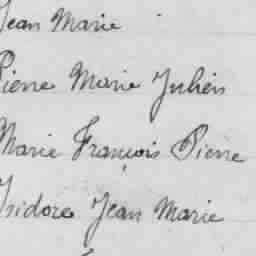 Jean Marie
Pierre Marie Julien
Marie François Pierre
Isidore Jean Marie